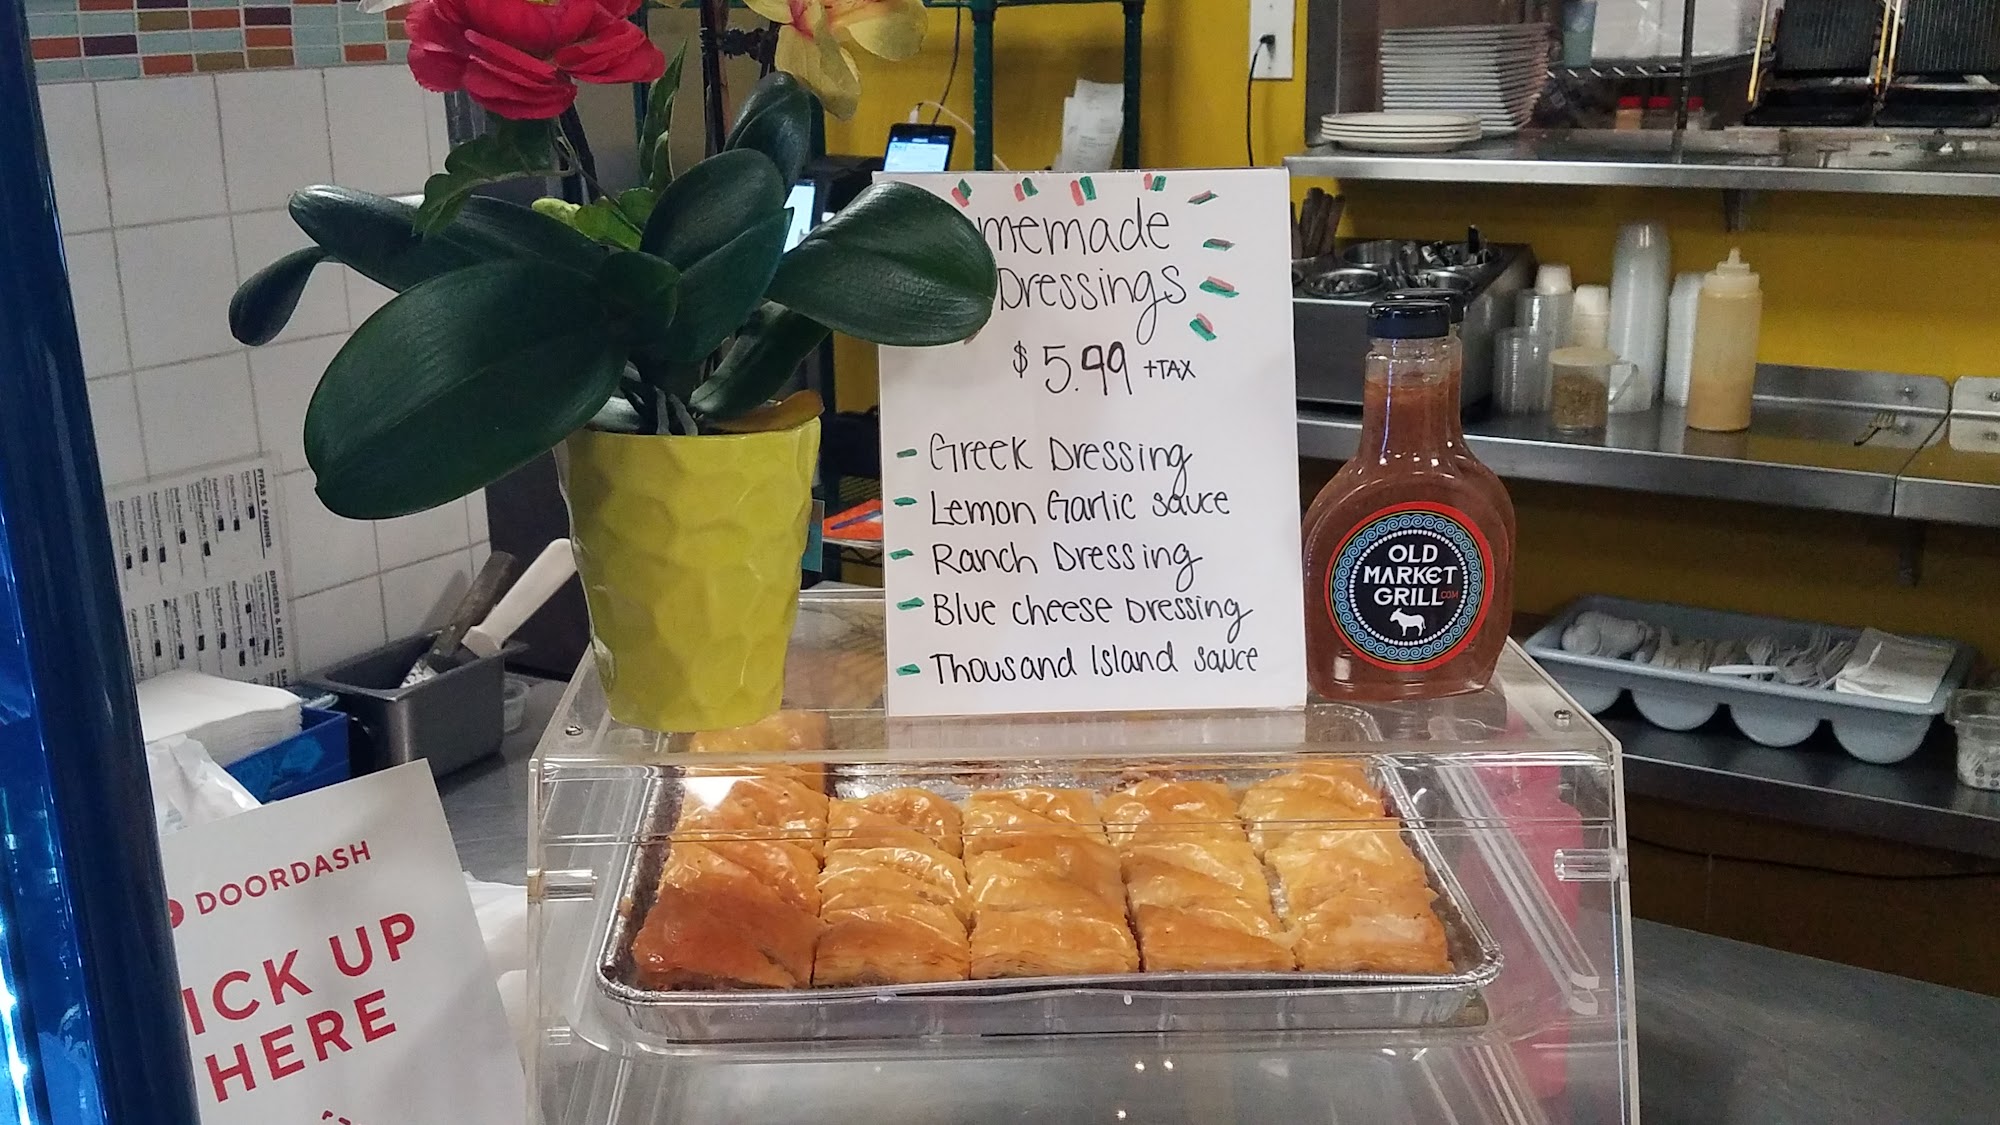 memade
Dressings
$5.99 +TAX
- Greek Dressing
- Lemon Garlic sauce
- Ranch Dressing
- Blue cheese Dressing
- Thousand Island sauce
OLD
MARKET
GRILL.COM
DOORDASH
ICK UP
HERE
PITAS & PANINIS
BURGERS & MELTS